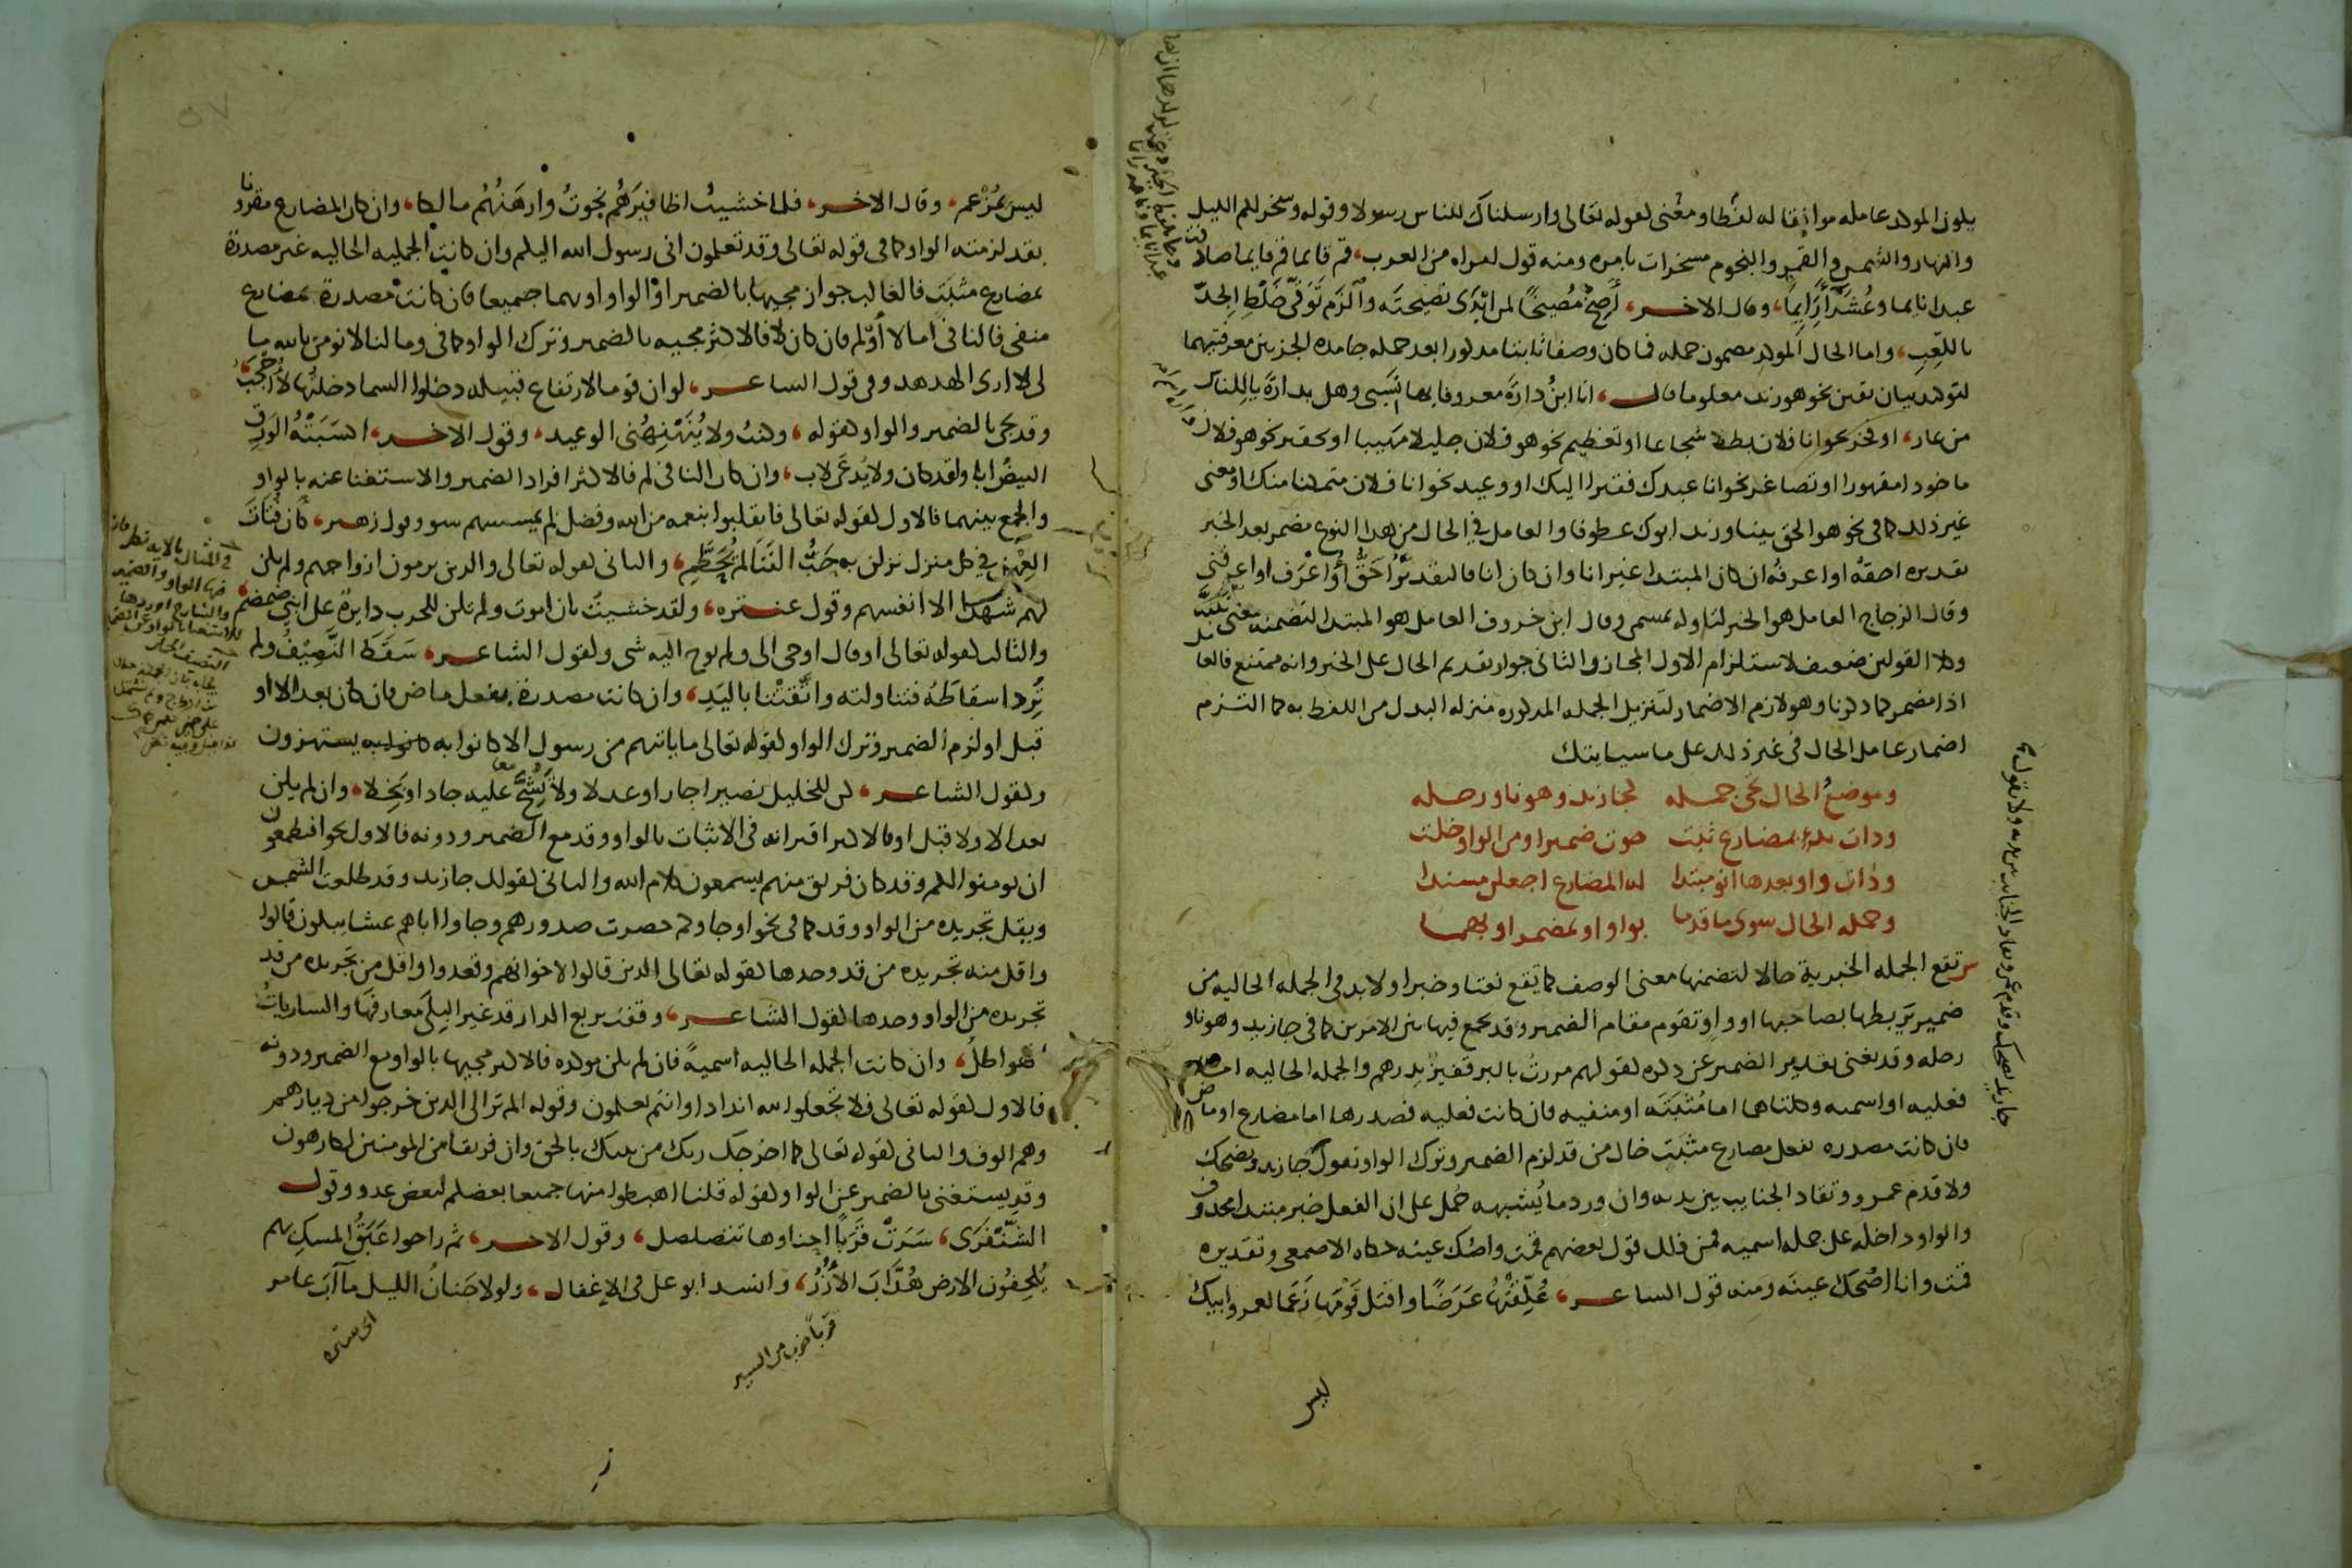 يكون المؤكد عامله موافقا له لفظا ومعنى كقوله تعالى وارسلناك للناس رسولا وقوله وسخر لكم الليل
والنهار والشمس والقمر والنجوم مسخرات بامره ومنه قول امراه من العرب، قم قايما قم قايما صادفت
عبدا نايما وعشرا رايما، وقال الاخر، أصخ مصيخا لمن ابدى نصيحته والزم توقى خلط الجد
باللعب، واما الحال المؤكد مضمون جمله فما كان وصفا ثابتا مذكورا بعد جمله جامده الجزئين معرفتيهما
لتوكيد بيان تعين نحو هو زيد معلوما قال، انا ابن دارة معروفا بها نسبى وهل بدارة ياللناس
من عار، او فخر نحو انا فلان بطلا شجاعا او تعظيم نحو هو فلان جليلا مهيبا او تحقير نحو هو فلان
ماخوذا مقهورا او تصاغر نحو انا عبدك فقيرا اليك او وعيد نحو انا فلان متمكنا منك او معنى
غير ذلك كما فى نحو هو الحق بينا وزيد ابوك عطوفا والعامل في الحال من هذا النوع مضمر بعد الخبر
تقديره احقه او اعرفه ان كان المبتدا غير انا وان كان انا فالتقدير احق او اعرف او اعرفنى
وقال الزجاج العامل هو الخبر لتاوله بمسمى وقال ابن خروف العامل هو المبتدا لتضمنه معنى تنبه
وكلا القولين ضعيف لاستلزام الاول المجاز والثانى جواز تقديم الحال على الخبر وانه ممتنع فالعامل
اذا مضمر كما ذكرنا وهو لازم الاضمار لتنزيل الجمله المذكوره منزله البدل من اللفظ به كما التزم
اضمار عامل الحال فى غير ذلك على ما سياتيك
وموضع الحال تجى جمله كجا زيد وهو ناو رحله
وذات بدء بمضارع ثبت حوت ضميرا ومن الواو خلت
وذات واو بعدها انو مبتدا له المضارع اجعلن مسندا
وجمله الحال سوى ما قدما بواو او بمضمر او بهما
ش تقع الجمله الخبرية حالا لتضمنها معنى الوصف كما تقع نعتا وخبرا ولا بد فى الجمله الحاليه من
ضمير يربطها بصاحبها او واو تقوم مقام الضمير وقد يجمع فيها بين الامرين كما فى جا زيد وهو ناو
رحله وقد يغنى تقدير الضمير عن ذكره كقولهم مررت بالبر قفيز بدرهم والجمله الحاليه اما
فعليه او اسميه وكلتاهما اما مثبته او منفيه فان كانت فعليه فصدرها اما مضارع او ماض
فان كانت مصدره بفعل مضارع مثبت خال من قد لزم الضمير وترك الواو تقول جا زيد يضحك
ولا قدم عمرو وتقاد الجنايب بين يديه وان ورد ما يشبهه حمل على ان الفعل خبر مبتدا محذوف
والواو داخله على جمله اسميه فمن ذلك قول بعضهم قمت واصك عينه حكاه الاصمعى وتقديره
قمت وانا اصك عينه ومنه قول الشاعر، علقتها عرضا واقتل قومها زعما لعمر وابيك
ليس
ليس بمزعم، وقال الاخر، فلما خشيت اظافيرهم نجوت وارهنهم مالكا، وان كان المضارع مقرونا
بقد لزمته الواو كما فى قوله تعالى وقد تعلمون انى رسول الله اليكم وان كانت الجمله الحاليه غير مصدرة
بمضارع مثبت فالغالب جواز مجيها بالضمير او الواو او بهما جميعا فان كانت مصدرة بمضارع
منفى فالنافى اما لا او لم فان كان لا فالاكثر مجيه بالضمير وترك الواو كما فى وما لنا لا نومن بالله ما
لى لا ارى الهدهد وفى قول الشاعر، لو ان قوما لارتفاع قبيله دخلوا السما دخلتها لا احجب،
وقد يجى بالضمير والواو كقوله، وكنت ولا ينهنهنى الوعيد، وقول الاخر، اكسبته الورق
البيض ابا ولقد كان ولا يدعى لاب، وان كان النافى لم فالاكثر افراد الضمير والاستغنا عنه بالواو
والجمع بينهما فالاول كقوله تعالى فانقلبوا بنعمه من الله وفضل لم يمسسهم سو وقول زهير، كأن فتات
العهن في كل منزل نزلن به حب الفنا لم يحطم، والثانى كقوله تعالى والذين يرمون ازواجهم ولم يكن
لهم شهدا الا انفسهم وقول عنتره، ولقد خشيت بان اموت ولم تكن للحرب دايرة على ابنى ضمضم
والثالث كقوله تعالى او قال اوحى الى ولم يوح اليه شى وكقول الشاعر، سقط النصيف ولم
ترد اسقاطه فتناولته واتقتنا باليد، وان كانت مصدرة بفعل ماض فان كان بعد الا او
قبل او لزم الضمير وترك الواو كقوله تعالى ما ياتيهم من رسول الا كانوا به يستهزون
وكقول الشاعر، كن للخليل نصيرا جار او عدلا ولا تشح عليه جاد او بخلا، وان لم يكن
بعد الا ولا قبل او فالاكثر اقترانه فى الاثبات بالواو وقد مع الضمير ودونه فالاول نحو افتطمعون
ان يومنوا لكم وقد كان فريق منهم يسمعون كلام الله والثانى كقولك جا زيد وقد طلعت الشمس
ويقل تجريده من الواو وقد كما فى نحو او جاوكم حصرت صدورهم وجاوا اباهم عشا يبكون قالوا
واقل منه تجريده من قد وحدها كقوله تعالى الذين قالوا لاخوانهم وقعدوا واقل من تجريده من قد
تجريده من الواو وحدها كقول الشاعر، وقفت بربع الدار قد غير البلى معارفها والساريات
هواطل، وان كانت الجمله الحاليه اسمية فان لم تكن موكده فالاكثر مجيها بالواو مع الضمير ودونه
فالاول كقوله تعالى فلا تجعلوا لله اندادا وانتم تعلمون وقوله الم تر الى الذين خرجوا من ديارهم
وهم الوف والثانى كقوله تعالى كما اخرجك ربك من بيتك بالحق وان فريقا من المومنين لكارهون
وقد يستغنى بالضمير عن الواو كقوله قلنا اهبطوا منها جميعا بعضكم لبعض عدو وقول
الشنفرى، سرت قربا احناوها تتصلصل، وقول الاخر، ثم راحوا عبق المسك بهم
يلحفون الارض هداب الازر، وانشد ابو على فى الاغفال، ولولا جنان الليل ما آب عامر
قربا ضرب من السير
اى ستره